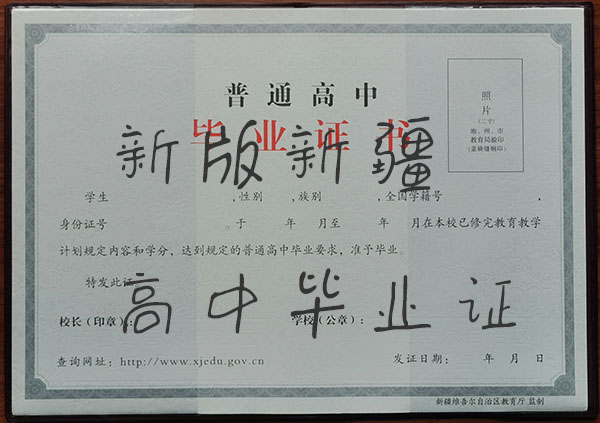 普通高中
毕业证书
照
片
(二寸)
地、州、市
教育局验印
(盖骑缝钢印)
新版新疆
学生 ,性别 ,族别 ,全国学籍号 ,
身份证号 。于 年 月至 年 月在本校已修完教育教学
计划规定内容和学分，达到规定的普通高中毕业要求，准予毕业。
特发此证
高中毕业证
校长（印章）： 学校（公章）：
查询网址：http://www.xjedu.gov.cn 发证日期： 年 月 日
新疆维吾尔自治区教育厅 监制